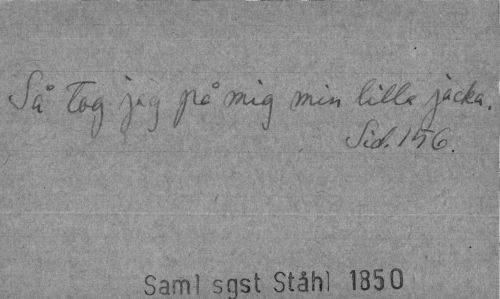 Så tog jag på mig min lilla jacka.
Sid. 156.
Saml sgst Ståhl 1850